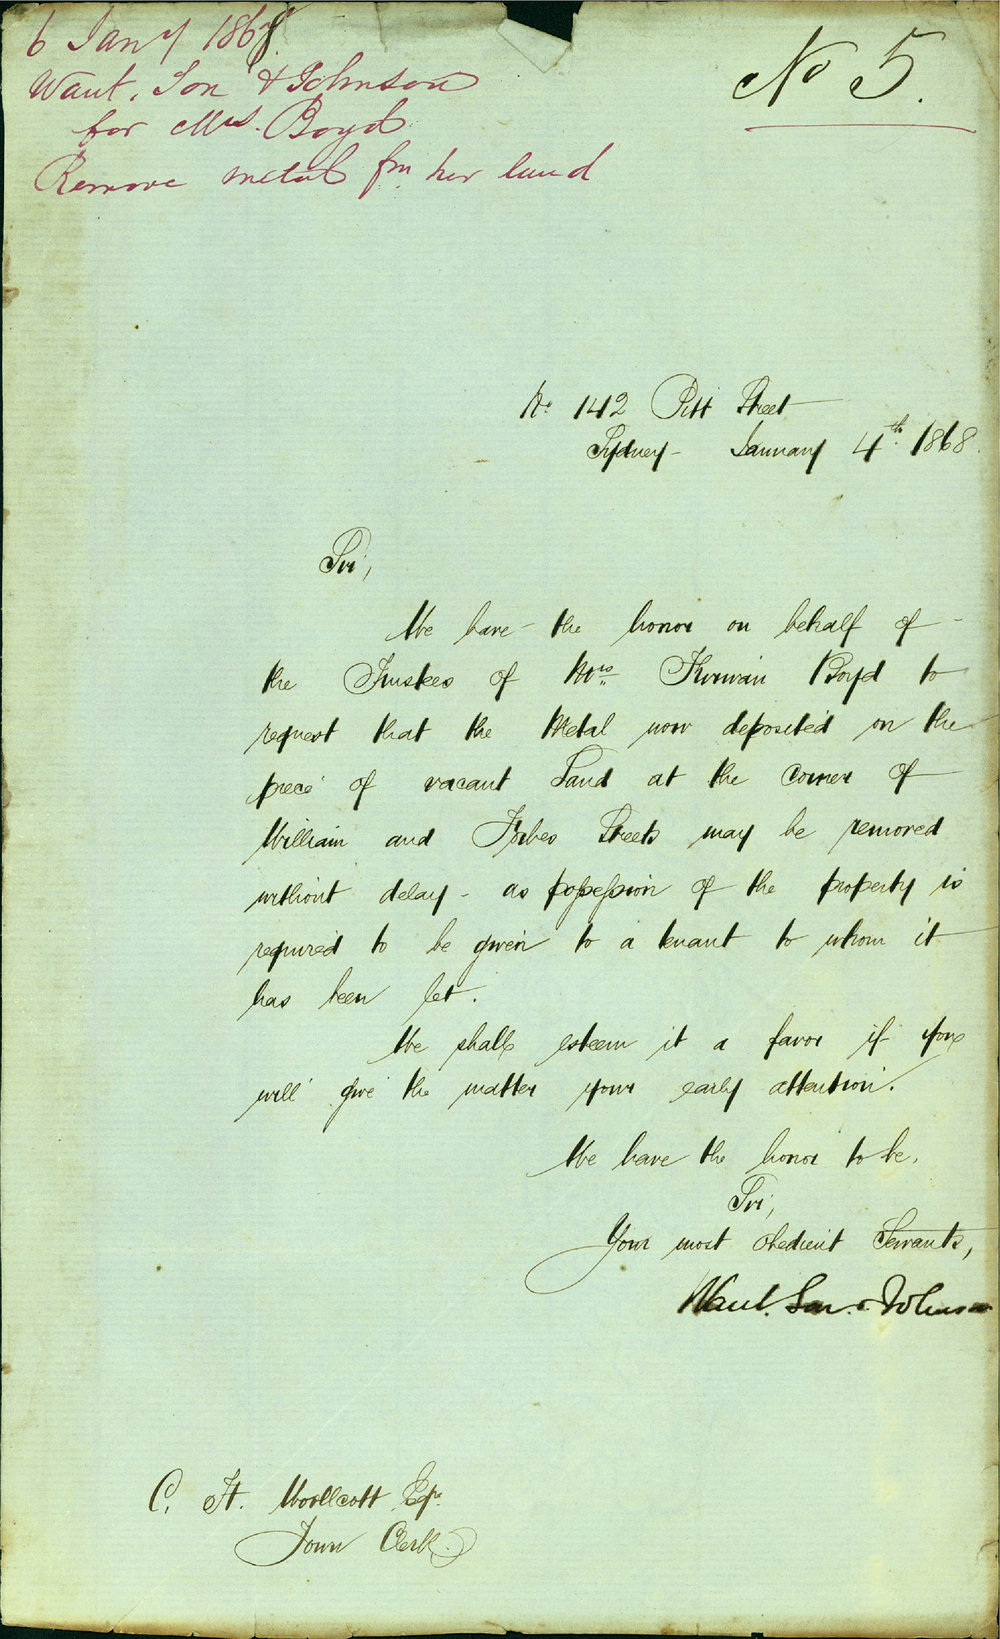 6 Jany 1868
Want, Son & Johnson
for Mrs. Boyd
Remove metal fm her land
No 5.
No. 142 Pitt Street
Sydney - January 4th. 1868.
Sir,
We have - the honor on behalf of -
the Trustees of Mrs. Boyd to
request that the Metal now deposited on the
piece of vacant Land at the corner of
William and Forbes Streets may be removed
without delay - as possession of the property is
required to be given to a tenant to whom it
has been let.
We shall esteem it a favor if you
will give the matter your early attention.
We have the honor to be,
Sir,
Your most obedient Servants,
Want. Son & Johnson
C. H. Woollcott Esqr.
Town Clerk.